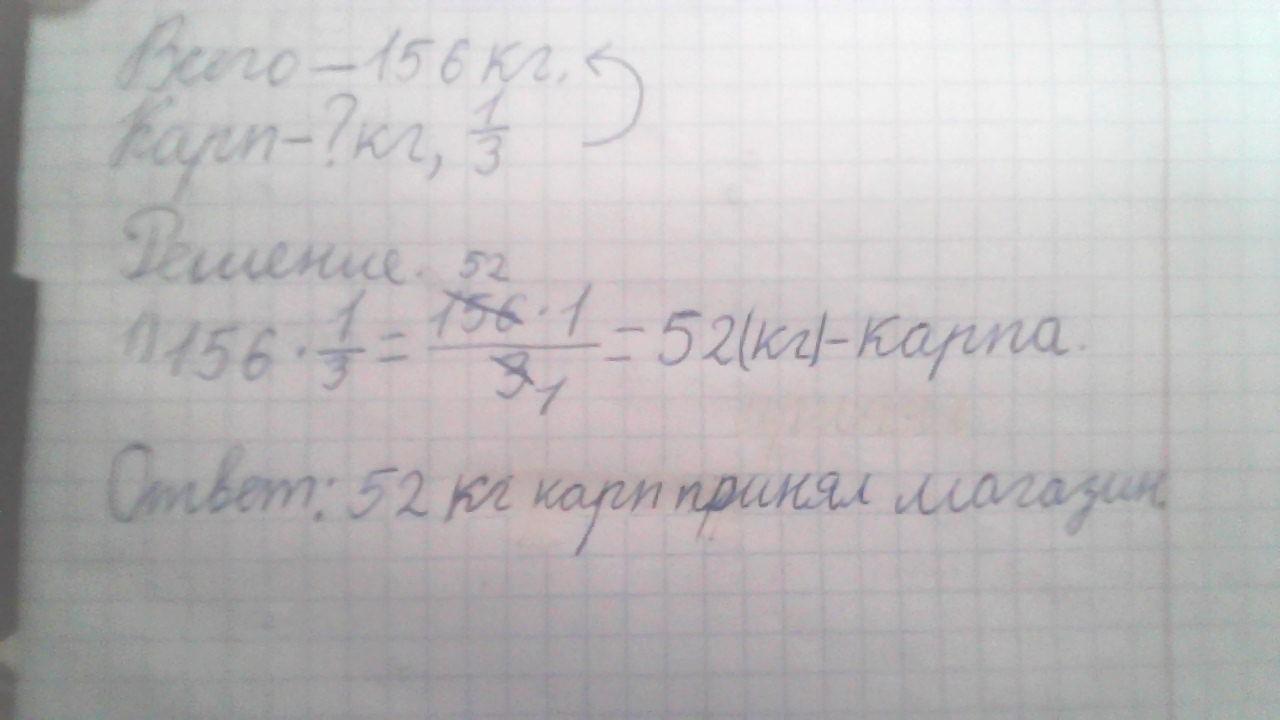 Всего – 156 кг.
Карп – ? кг, 1/3
Решение.
1) 156 · 1/3 = 156 · 1 / 3 = 52 (кг) – карпа.
52
1
Ответ: 52 кг карп принял магазин.